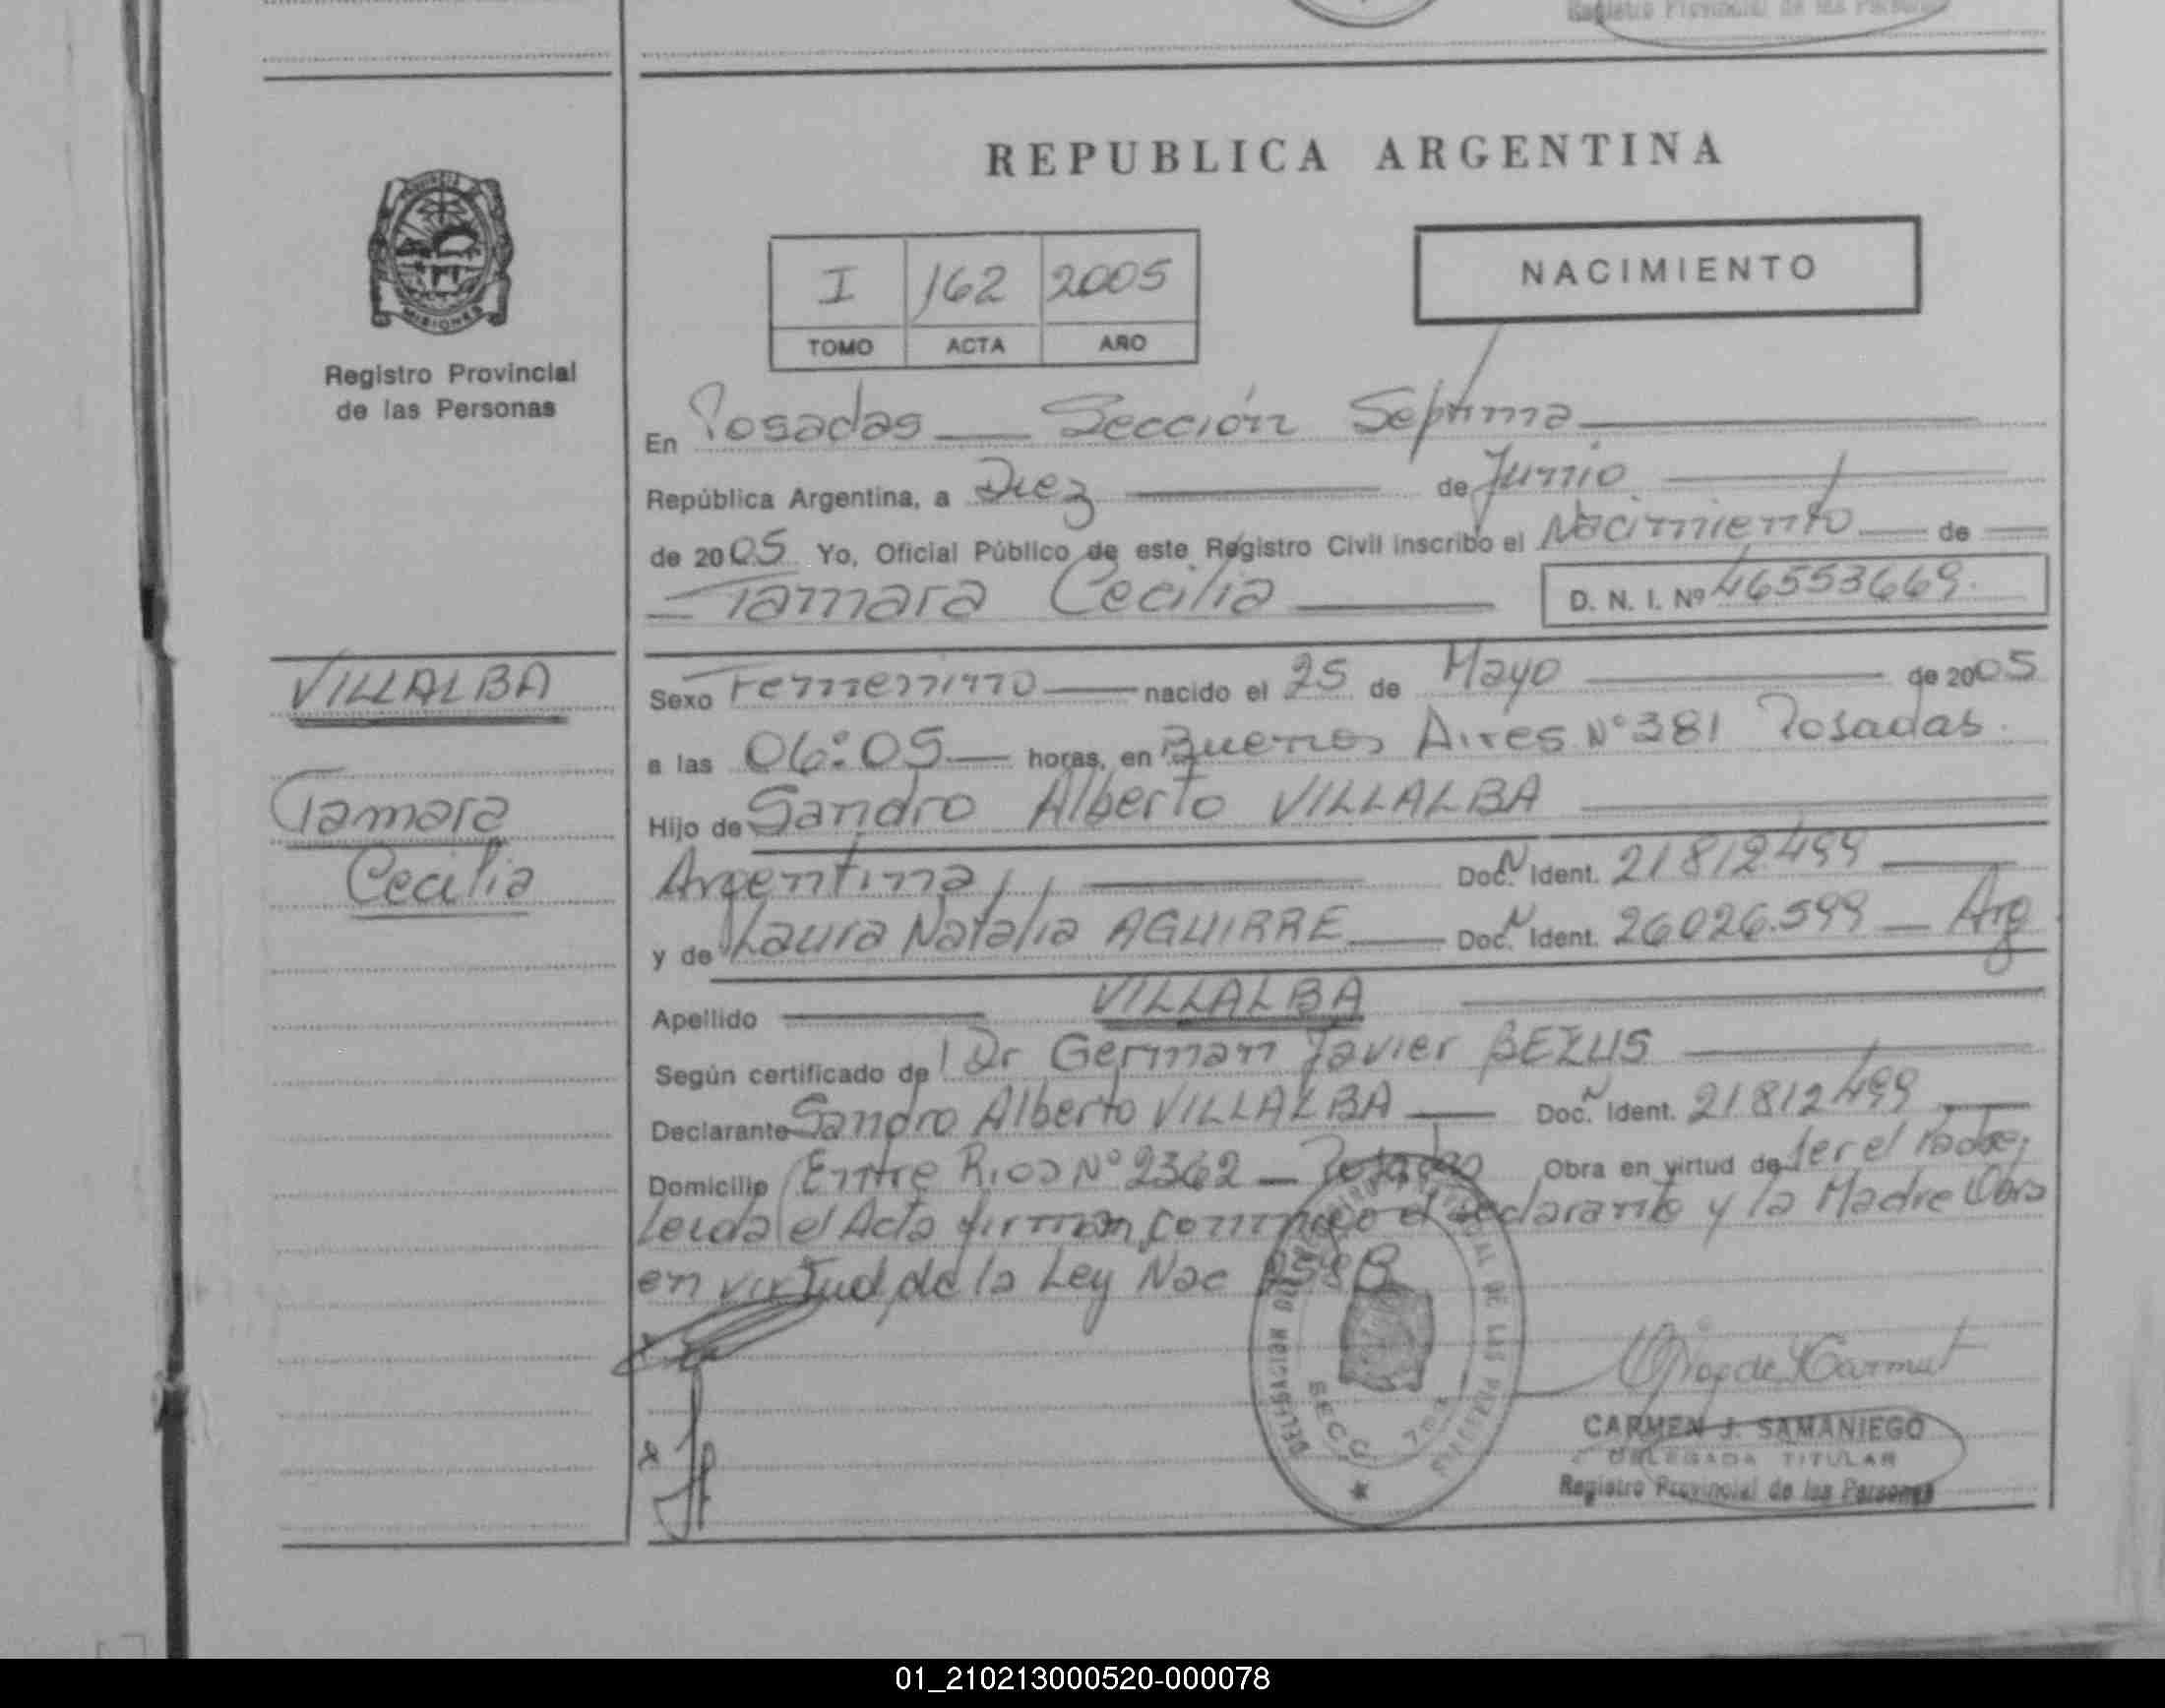 Registro Provincial de las Personas
REPUBLICA ARGENTINA
PROVINCIA DE
MISIONES
Registro Provincial
de las Personas
I 162 2005
TOMO ACTA AÑO
NACIMIENTO
En Posadas Sección Séptima
República Argentina, a Diez de Junio
de 2005 Yo, Oficial Público de este Registro Civil inscribo el Nacimiento de
Tamara Cecilia D. N. I. Nº 46553669.
VILLALBA
Tamara
Cecilia
Sexo Femenino nacido el 25 de Mayo de 2005
a las 06:05 horas, en Buenos Aires Nº 381 Posadas.
Hijo de Sandro Alberto VILLALBA
Argentina, Doc. N Ident. 21812499
y de Laura Natalia AGUIRRE Doc. N Ident. 26026.599 Arg
Apellido VILLALBA
Según certificado de Dr German Javier BEZUS
Declarante Sandro Alberto VILLALBA Doc. N Ident. 21812499
Domicilio Entre Rios Nº 2362 Posadas Obra en virtud de ser el Padre,
Leida el Acta firman conmigo el declarante y la Madre Obra
en virtud de la Ley Nac
DELEGACION DEL REGISTRO PROVINCIAL DE LAS PERSONAS
SECC. 7ma
CARMEN J. SAMANIEGO
DELEGADA TITULAR
Registro Provincial de las Personas
01_210213000520-000078